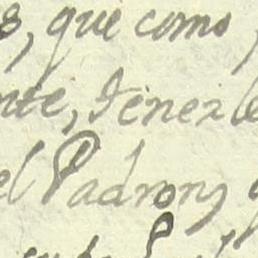 s, que como
nte, tenez le
el Padron, q